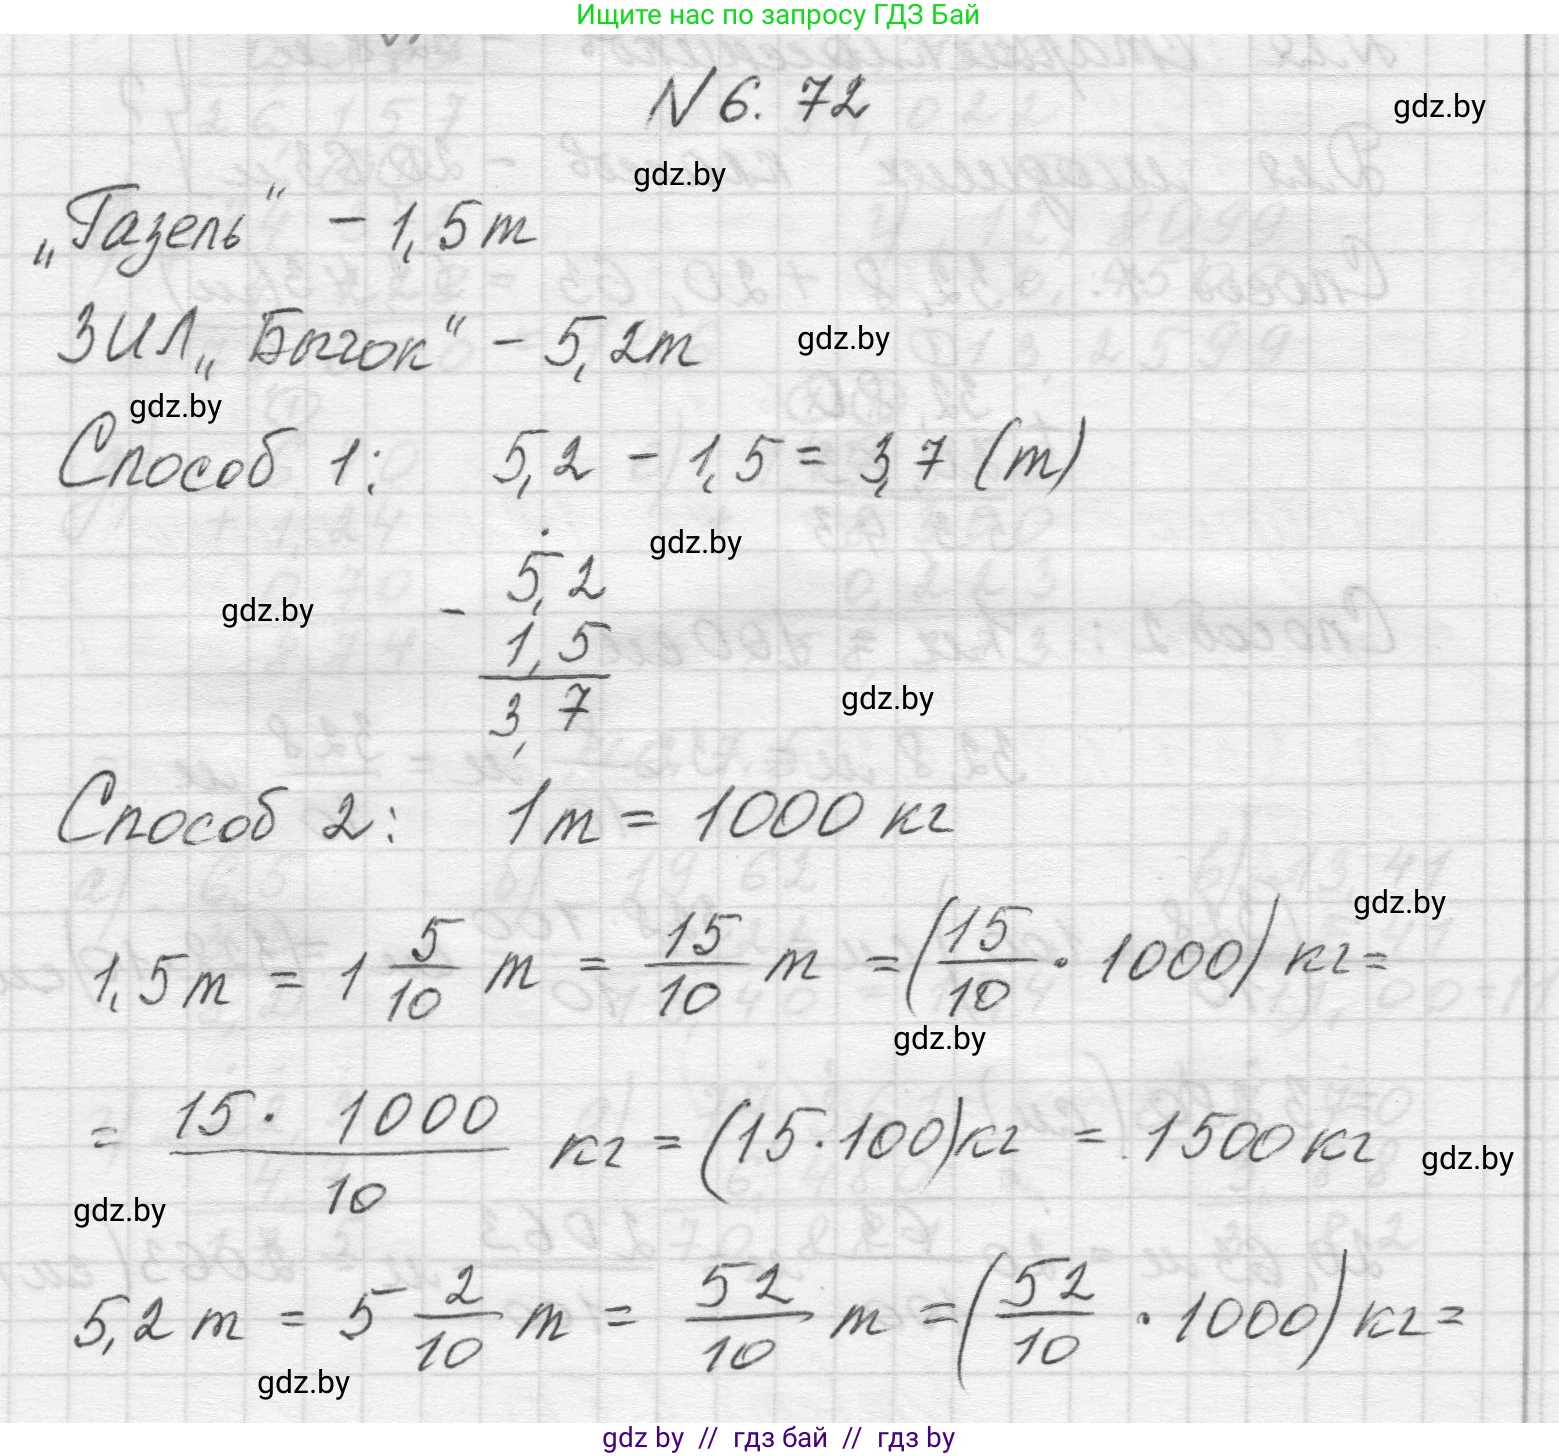 Ищите нас по запросу ГДЗ Бай
N 6. 72
gdz.by
gdz.by
„Газель“ - 1,5 т
ЗИЛ „Бычок“ - 5,2 т
gdz.by
gdz.by
Способ 1: 5,2 - 1,5 = 3,7 (т)
gdz.by
- 5,2
gdz.by
1,5
3,7
gdz.by
Способ 2: 1 т = 1000 кг
gdz.by
1,5 т = 1 5/10 т = 15/10 т = (15/10 · 1000) кг =
gdz.by
= 15 · 1000/10 кг = (15 · 100) кг = 1500 кг
gdz.by
gdz.by
5,2 т = 5 2/10 т = 52/10 т = (52/10 · 1000) кг =
gdz.by
gdz by // гдз бай // gdz by